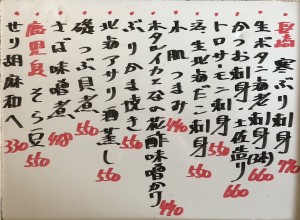 長崎 寒ぶり刺身 770
生ボタン海老刺身(2本) 660
かつお刺身 土佐造り 660
トロサーモン刺身 550
活〆生北海だこ刺身 550
水肌つまみ 440
ホタルイカと谷の花酢味噌かけ 440
ぶりかま焼き 550
北海アサリ酒蒸し 550
磯つぶ貝煮 550
さば味噌煮 480
鹿児島 そら豆 550
せり胡麻和へ 330